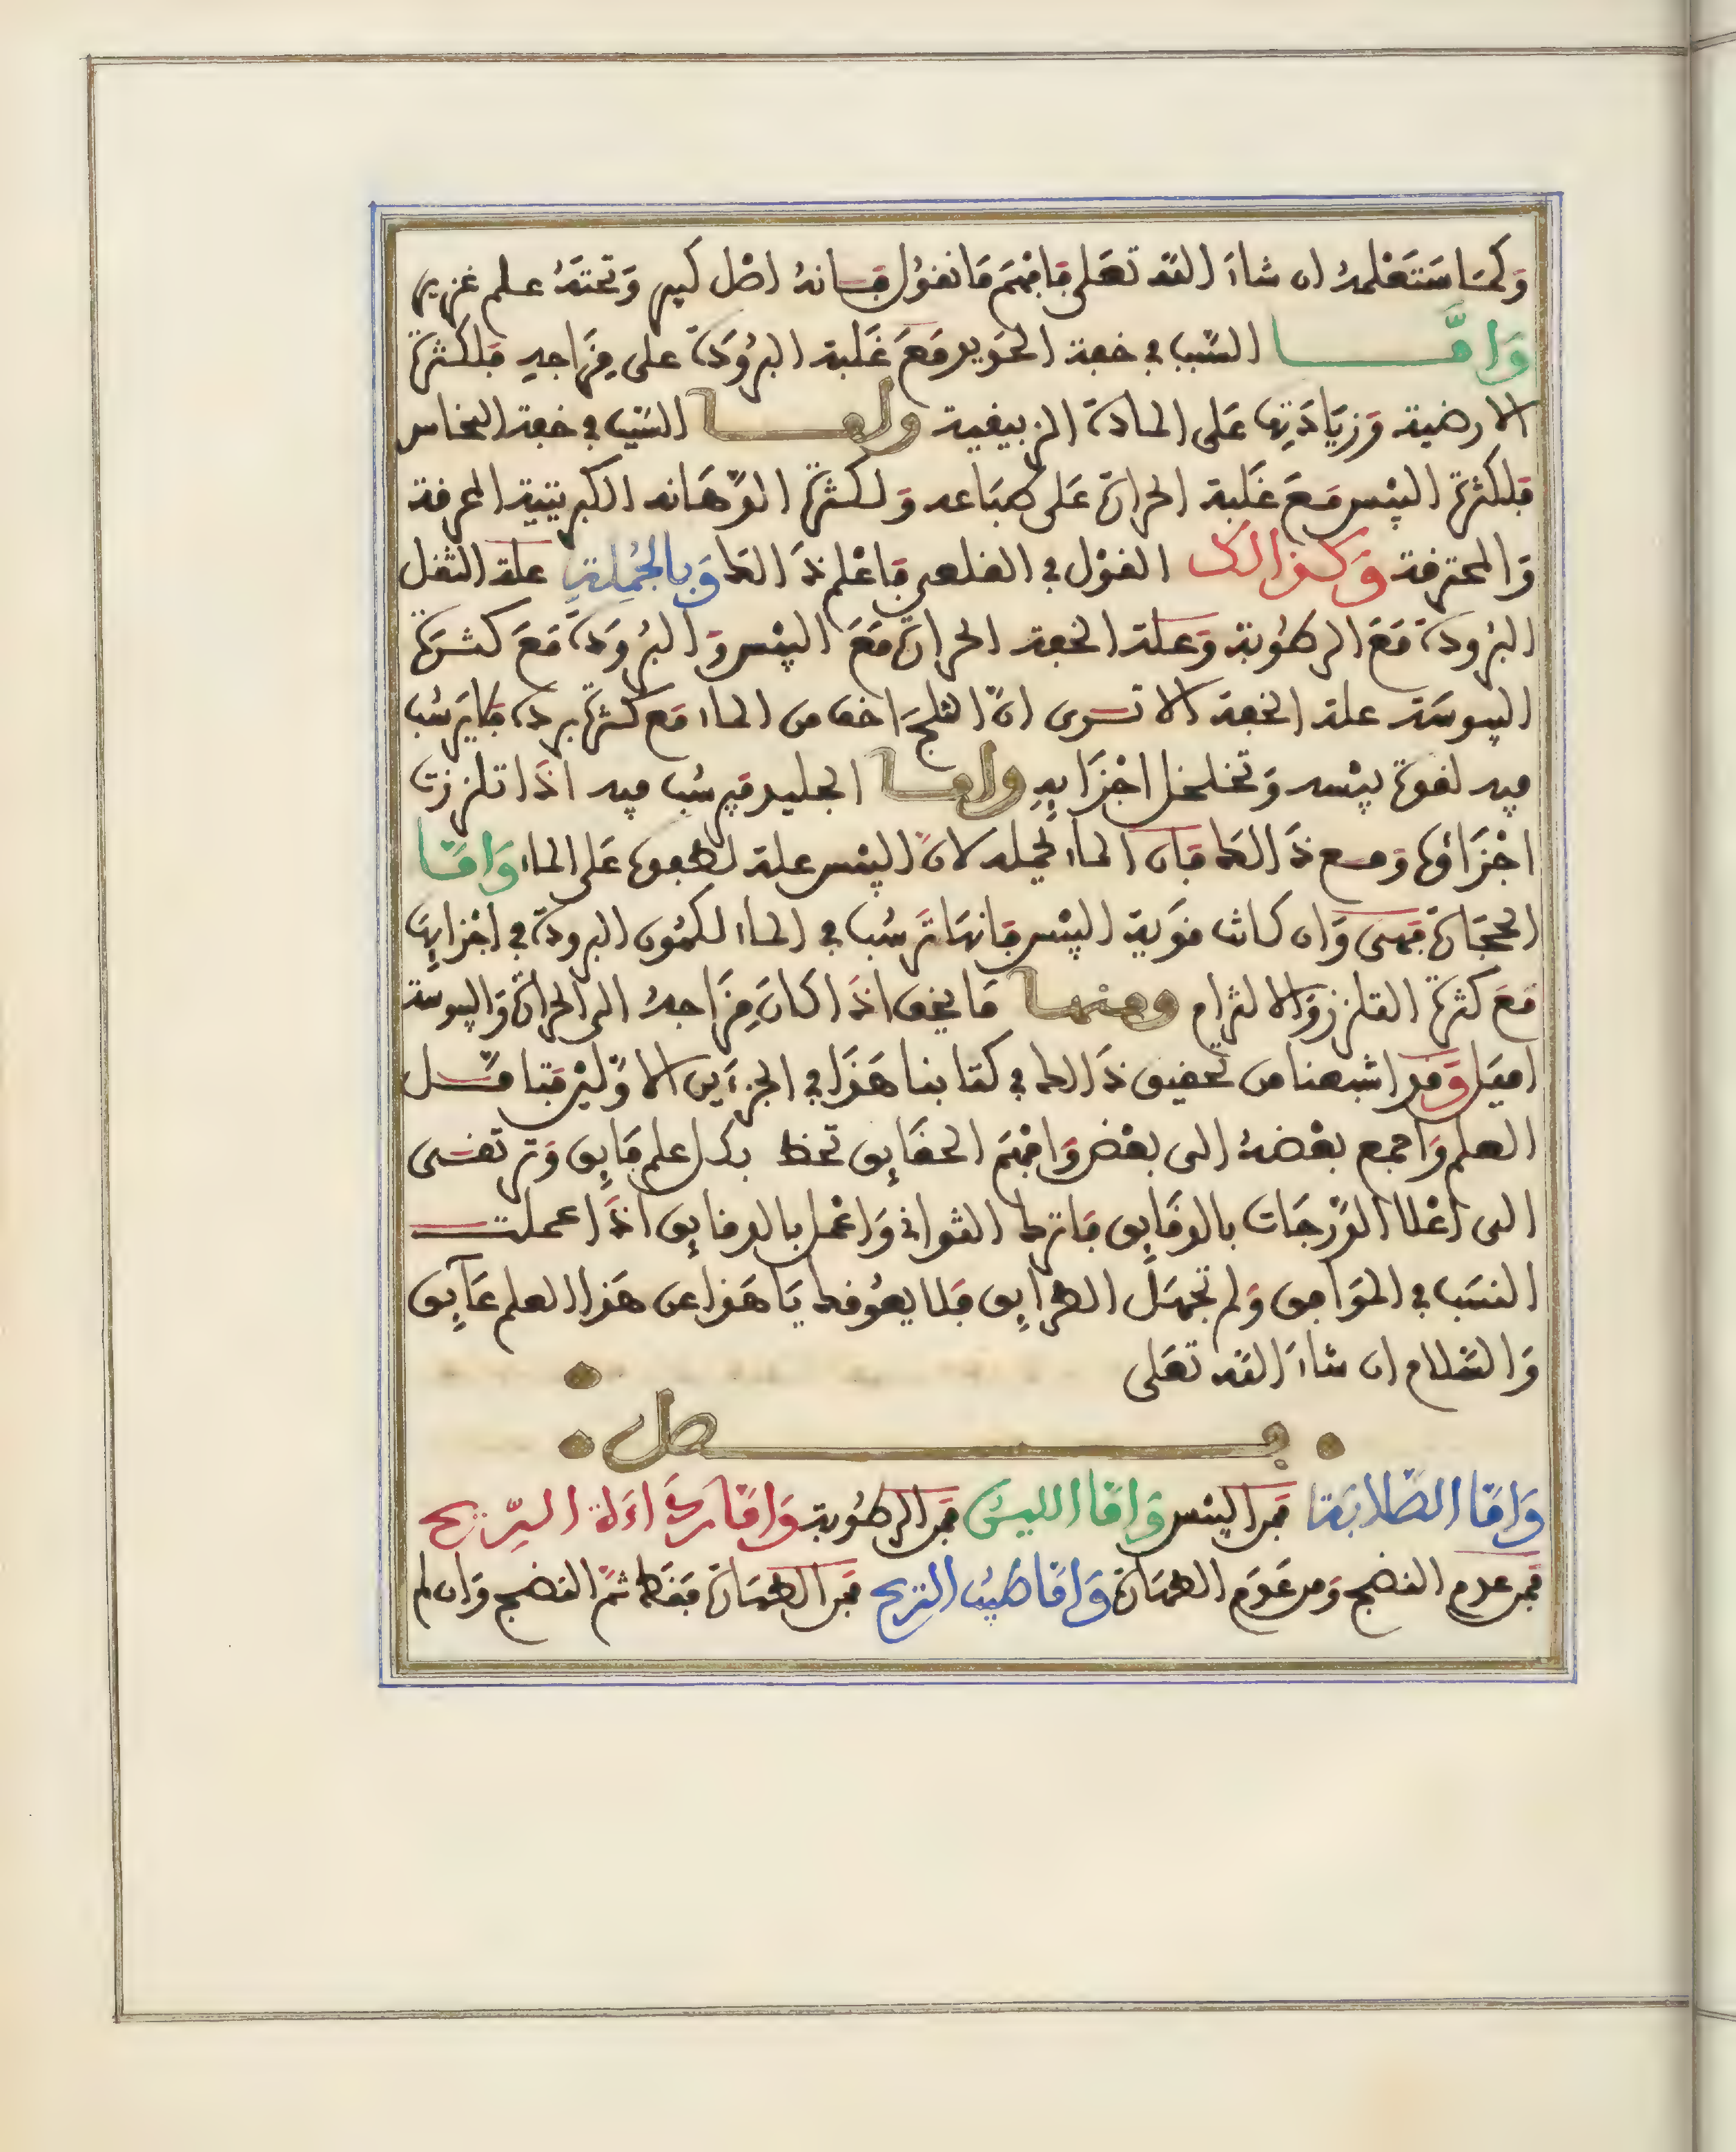 وَكمَا سَتَعْلمهُ ان شاءَ اللَّه تعَلى فَافْهَم مَا نقوُل فَإنهُ اصْل كبير وَتحتَهُ علم غزير
وَامَّا السّبب في خفة الحَديد مَعَ غَلبة البرُودَة على مِزَاجهِ فَلكثرة
الارضية وَزيَادَتِها عَلى المادة الزيبقية واما السّبب في خفة النحاس
فَلكثرة اليبْس مَعَ غَلبة الحرارة عَلى طبَاعه وَلكثرة الدّهَانه الكبريتية المحرقة
وَالمحترقة وَكذالك القوْل في القلعي فَاعْلم ذَالك وَبالجُملةِ علة الثقل
البرُودة مَعَ الرطوُبة وَعلة الخفة الحرارة مَعَ اليبْس وَالبرُودَة مَعَ كثرة
اليبوسَة علة الخفة الا ترى انّ الثلجَ اخف من الماء مَع كثرة برده فَلا يَرسُب
فيه لقوة يبْسه وَتخلخل اجْزَايِهِ واما الجليد فيرسُب فيه اذَا تلززت
اجْزَاؤها وَمع ذَالك فَان الماء يحمله لانّ اليبْس علة لطفوها عَلى الماء وَامَّا
الحجَارة فَهى وَان كانت قوَية اليبْس فانهَا تَرسُب في الماء لكمُون البرودة في اجْزَايِهَا
مَعَ كثرة التلززوَالالتزام ومنها مَا يخف اذَا كانَ مِزَاجهُ الى الحرارة وَاليبوسة
اميَل وَقد اشبعنا من تحقيق ذَالك في كتابنا هَذَا في الجزءَين الاوَّليْن فتامّل
العلم وَاجمع بعْضهُ الى بعْض وَافْهَم الحقَايِق تحظ بكل علم فَايِق وَترتقى
الى اعْلا الدَّرجَات بالدقَايِق فاترك الثواني وَاعْمل بالدقايِق اذَا عملت
النسَب في الموَافق وَلم تجهَل الطرايِق فَلا يعوُقك يَا هَذا عن هَذا العلم عَايِق
وَالسَّلام ان شاءَ اللَّه تعَلى
فصل
وَامَّا الصَّلابَة فَمن اليبْس وَامَّا الليُن فَمن الرطوُبة وَامَّا رَدَاءَة الرّيح
فَمن عدم النضج وَمن عَدَم الطهَارة وَامَّا طيبُ الريح فَمن الطهَارة فَقط ثمَّ النضج وَان لم